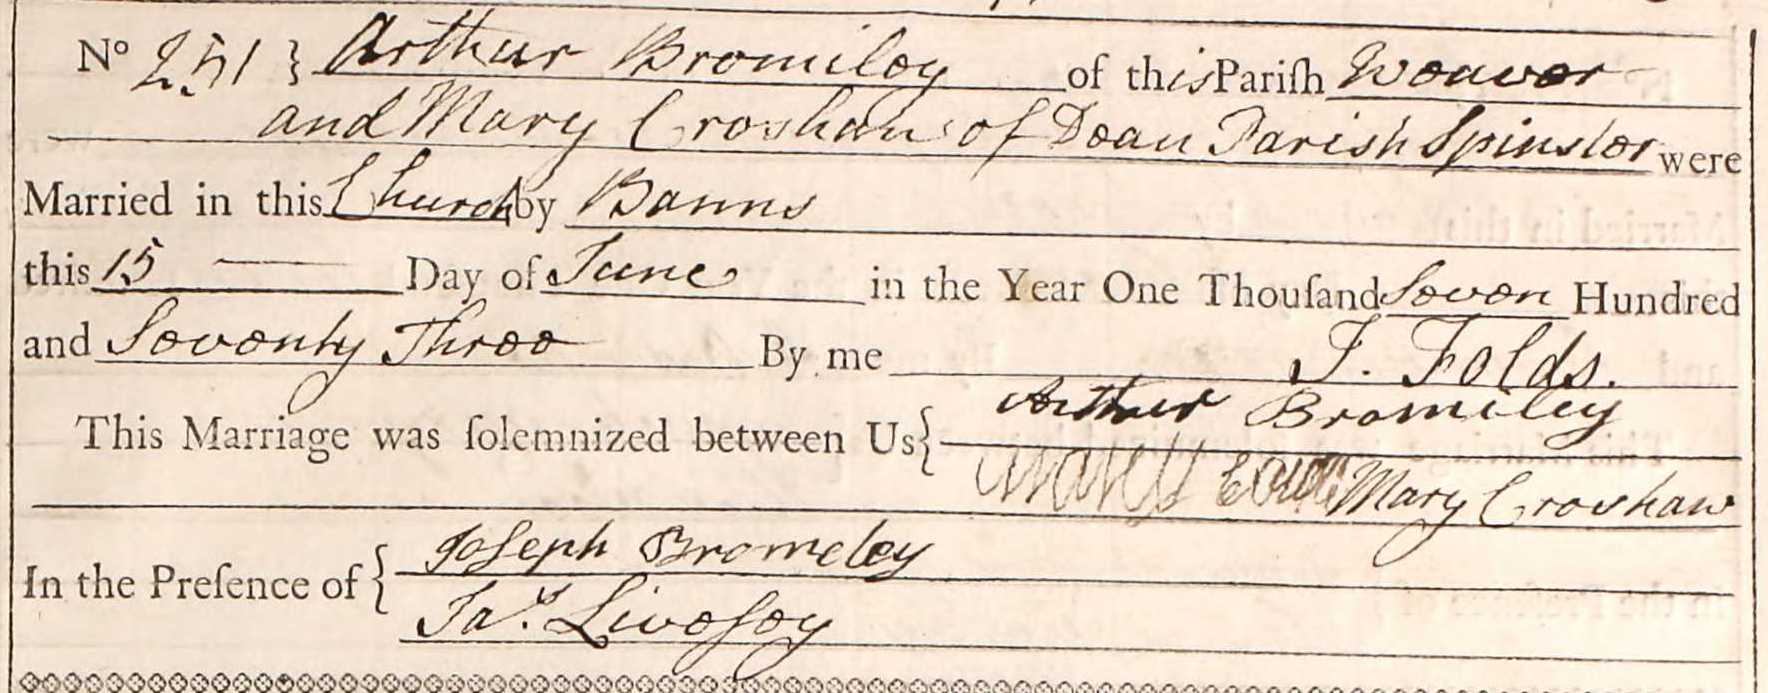 No 251 } Arthur Bromiley of this Pariſh Weaver
and Mary Croshaw of Dean Parish Spinster were
Married in this Church by Banns
this 15 Day of June in the Year One Thouſand Seven Hundred
and Seventy Three By me J. Folds.
This Marriage was ſolemnized between Us { Arthur Bromiley
Mary Croshaw
In the Preſence of { Joseph Bromeley
Jas. Livesey